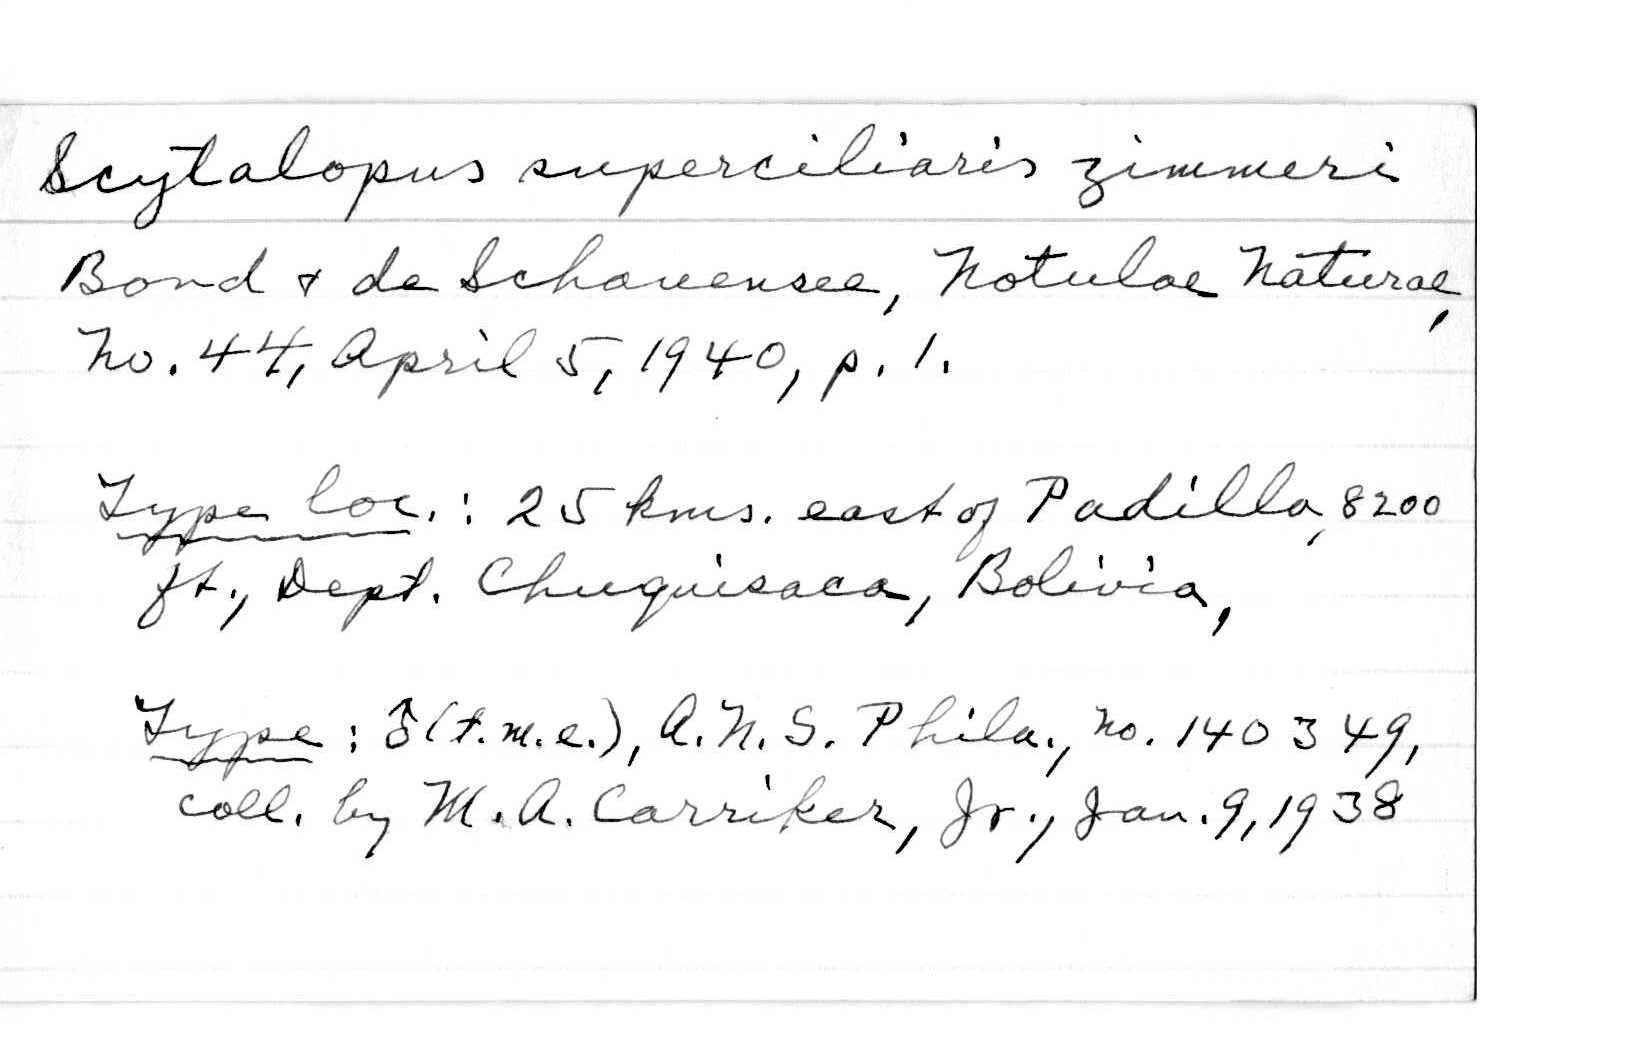 Scytalopus superciliaris zimmeri
Bond & de Schauensee, Notulae Naturae,
No. 44, April 5, 1940, p. 1.
Type loc.: 25 kms. east of Padilla, 8200
ft., Dept. Chuquisaca, Bolivia,
Type: ♂ (t.m.e.), A.N.S. Phila., No. 140349,
coll. by M.A. Carriker, Jr., Jan. 9, 1938